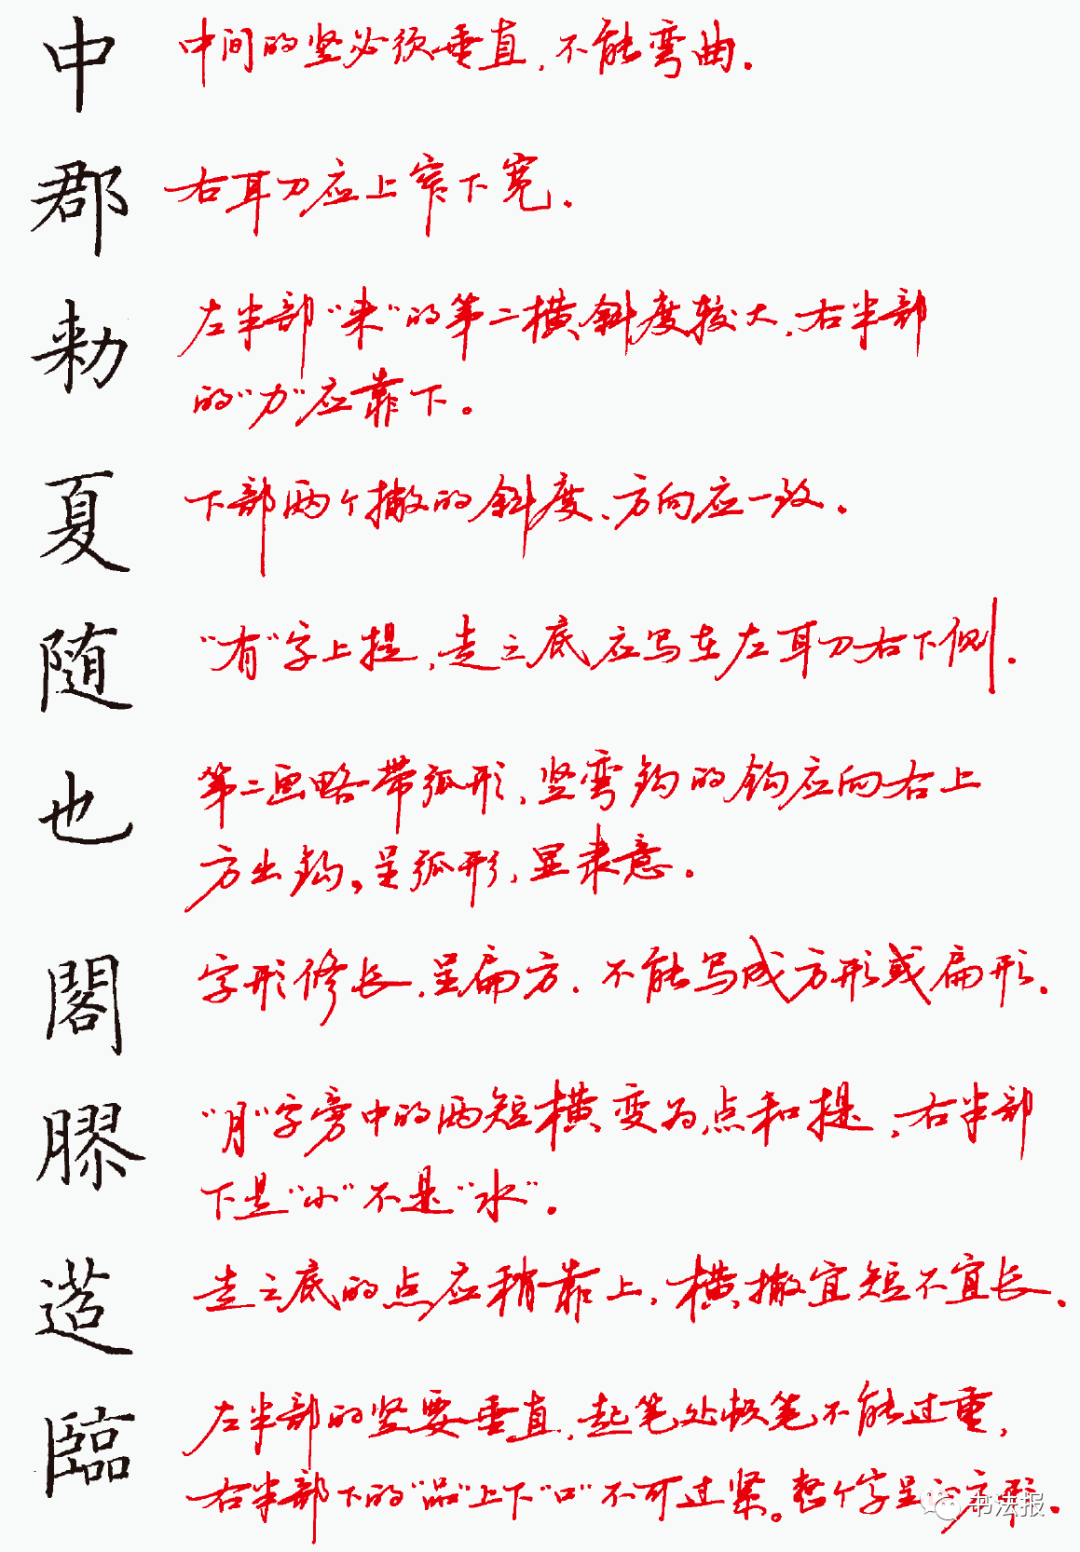 中 中间的竖必须垂直，不能弯曲．
郡 右耳刀应上窄下宽．
勑 左半部“来”的第二横斜度较大，右半部
的“力”应靠下。
夏 下部两个撇的斜度、方向应一致．
随 “有”字上提，走之底应写在左耳刀右下侧．
也 第二画略带弧形，竖弯钩的钩应向右上
方出钩，呈弧形，显隶意．
閣 字形修长，呈扁方．不能写成方形或扁形．
膠 “月”字旁中的两短横变为点和提，右半部
下是“小”不是“水”．
走之底的点应稍靠上，横撇宜短不宜长．
臨 左半部的竖要垂直，起笔处顿笔不能过重，
右半部下的“品”上下“口”不可过紧。整个字呈方形．
书法报